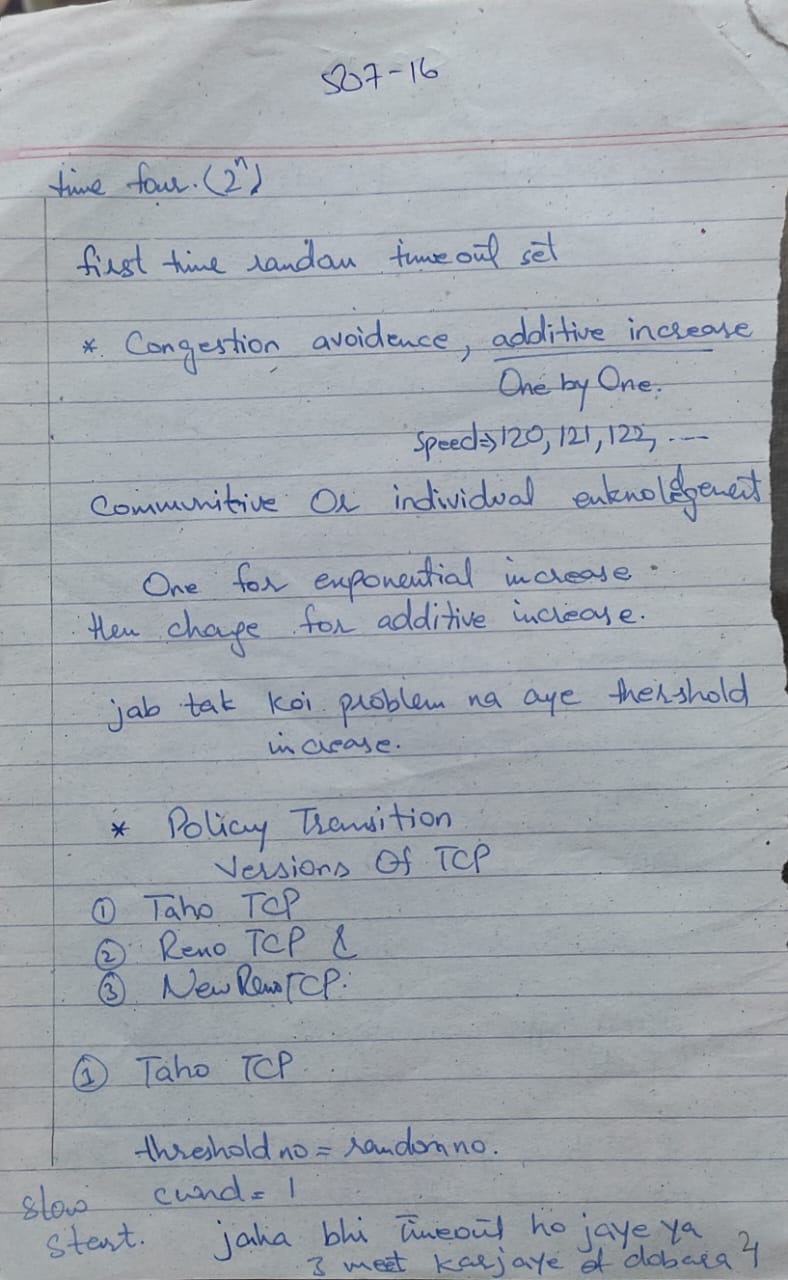 S07-16
time four. (2ⁿ)
first time randon timeout set
* Congestion avoidence, additive increase
One by One.
Speed⇒120, 121, 122, ---
Communitive Or individual euknoldgement
One for exponential increase.
then chage for additive increase.
jab tak koi problem na aye thershold
increase.
* Policy Transition
Versions Of TCP
① Taho TCP
② Reno TCP &
③ New Reno TCP.
① Taho TCP
threshold no = random no.
slow cwnd = 1
start. jaha bhi timeout ho jaye ya
3 meet karjaye dobara